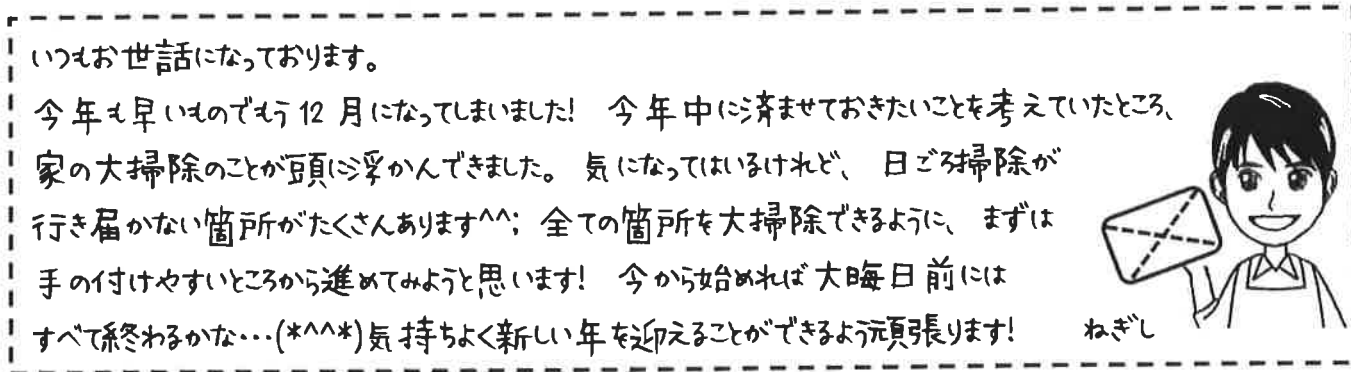 いつもお世話になっております。
今年も早いものでもう12月になってしまいました! 今年中に済ませておきたいことを考えていたところ、
家の大掃除のことが頭に浮かんできました。 気になってはいるけれど、 日ごろ掃除が
行き届かない箇所がたくさんあります^^; 全ての箇所を大掃除できるように、 まずは
手の付けやすいところから進めてみようと思います! 今から始めれば大晦日前には
すべて終わるかな…(*^^*)気持ちよく新しい年を迎えることができるよう頑張ります! ねぎし